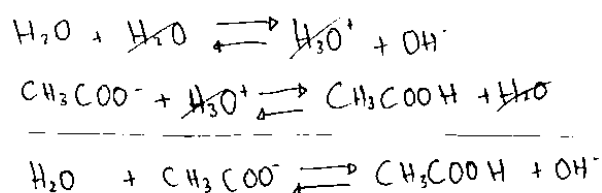 H₂O + H₂O ⇌ H₃O⁺ + OH⁻
CH₃COO⁻ + H₃O⁺ ⇌ CH₃COOH + H₂O
H₂O + CH₃COO⁻ ⇌ CH₃COOH + OH⁻